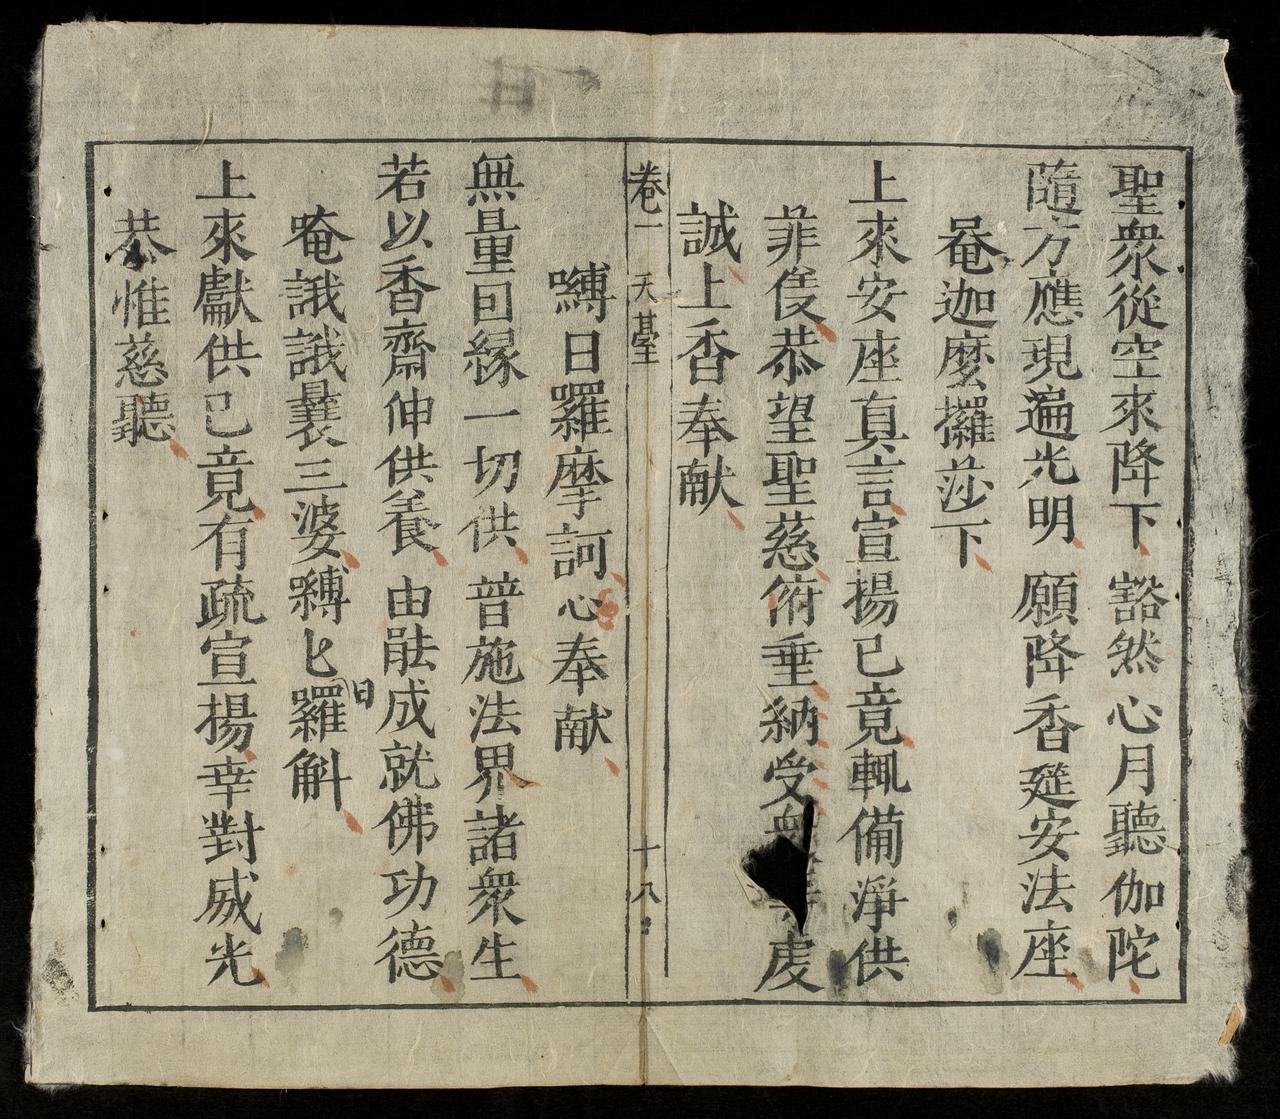 聖衆從空來降下豁然心月聽伽陀
隨方應現遍光明願降香筵安法座
唵迦麽攞莎下
上來安座真言宣揚已竟輒備淨供
菲𨾏恭望聖慈俯垂納受虔
誠上香奉献
卷一 天臺 十八
嚩日羅摩訶心奉献
無量因縁一切供普施法界諸衆生
若以香齋伸供養由能成就佛功德
唵誐誐曩三婆嚩𠤎日羅斛
上來獻供已竟有疏宣揚幸對威光
恭惟慈聽